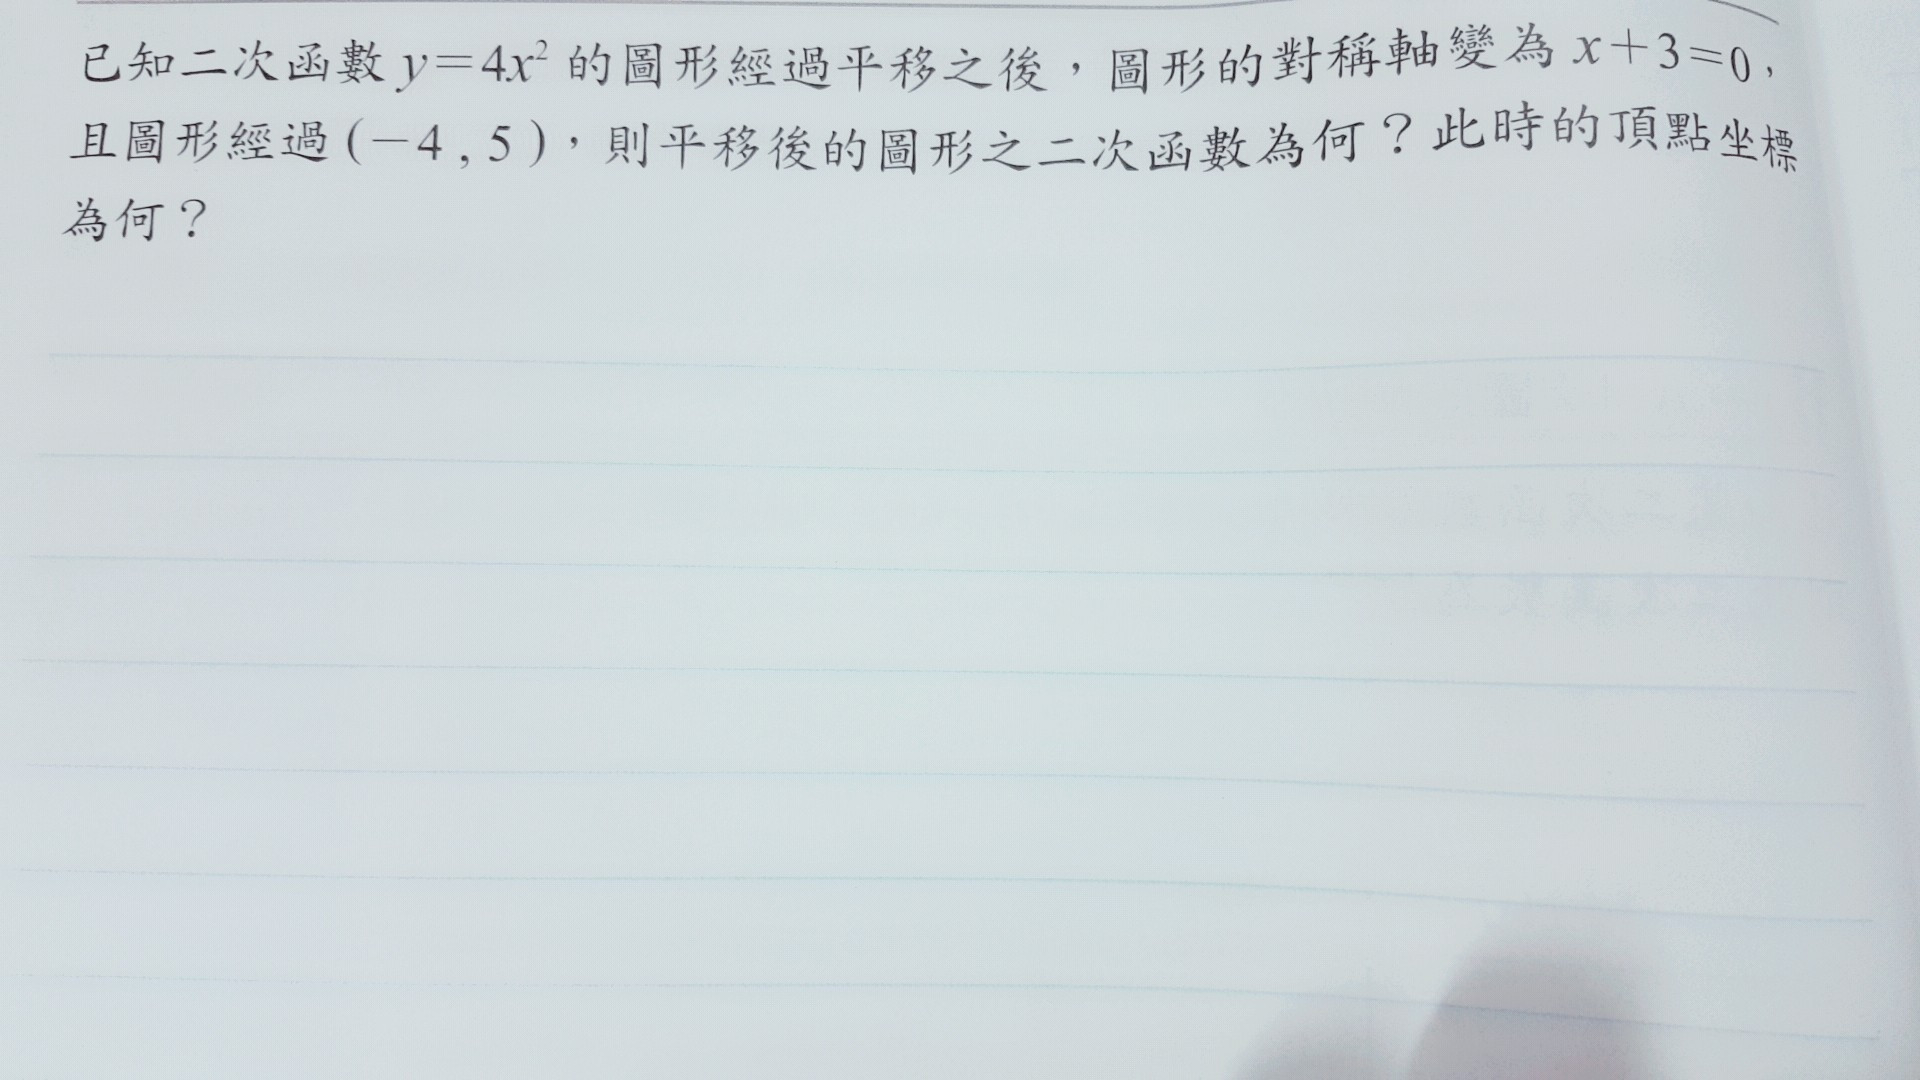 已知二次函數 y=4x² 的圖形經過平移之後，圖形的對稱軸變為 x+3=0，
且圖形經過 (－4 , 5 )，則平移後的圖形之二次函數為何？此時的頂點坐標
為何？